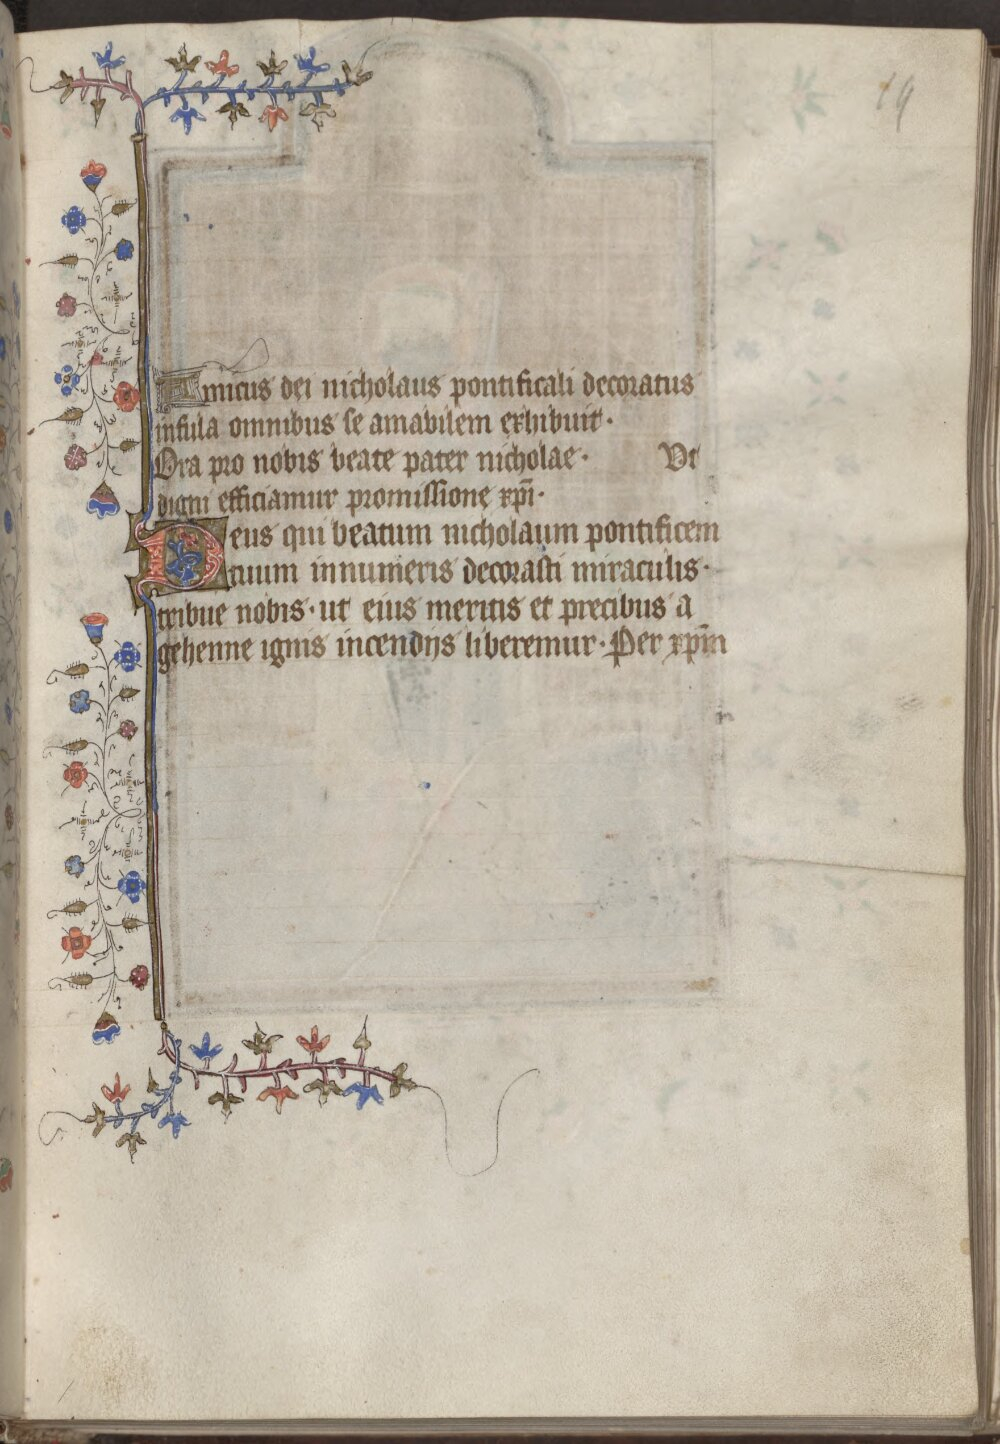 19
Amicus dei nicholaus pontificali decoratus
infula omnibus se amabilem exhibuit·
Ora pro nobis beate pater nicholae· Vt
digni efficiamur promissione xp̄i·
Deus qui beatum nicholaum pontificem
tuum innumeris decorasti miraculis·
tribue nobis· ut eius meritis et precibus a
gehenne ignis incendijs liberemur· Per xp̄m